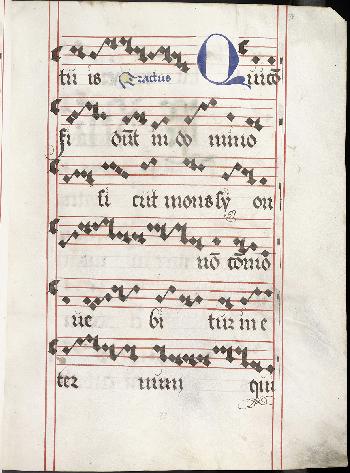 tu is Tractus Qui cō
fi dūt in do mino
si cut mons sy on
nō cōmo
ue bi tur in e
ter num qui